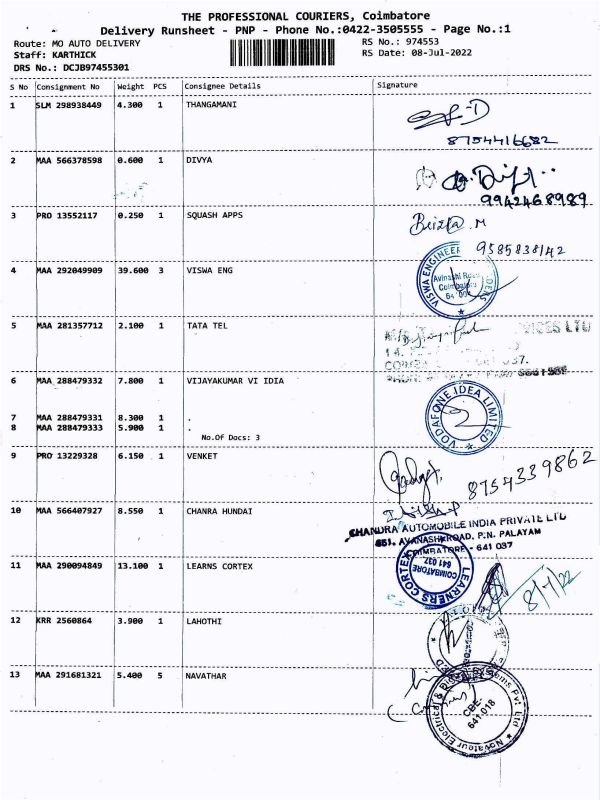 THE PROFESSIONAL COURIERS, Coimbatore
Delivery Runsheet - PNP - Phone No.:0422-3505555 - Page No.:1
Route: MO AUTO DELIVERY
RS No.: 974553
Staff: KARTHICK
RS Date: 08-Jul-2022
DRS No.: DCJB97455301
S No Consignment No Weight PCS Consignee Details Signature
1 SLM 298938449 4.300 1 THANGAMANI
8754416682
2 MAA 566378598 0.600 1 DIVYA
9942468989
3 PRO 13552117 0.250 1 SQUASH APPS
9585838142
4 MAA 292049909 39.600 3 VISWA ENG
VISWA ENGINEER
Avinashi Road
Coimbatore
5 MAA 281357712 2.100 1 TATA TEL
VICES LTD
6 MAA 288479332 7.800 1 VIJAYAKUMAR VI IDIA
VODAFONE IDEA LIMITED
7 MAA 288479331 8.300 1 .
8 MAA 288479333 5.900 1 .
No.Of Docs: 3
9 PRO 13229328 6.150 1 VENKET
8754339862
10 MAA 566407927 8.550 1 CHANRA HUNDAI
CHANDRA AUTOMOBILE INDIA PRIVATE LTD
651, AVANASHI ROAD, P.N. PALAYAM
COIMBATORE - 641 037
11 MAA 290094849 13.100 1 LEARNS CORTEX
LEARNERS CORTEX
COIMBATORE
641 037
8/7/22
12 KRR 2560864 3.900 1 LAHOTHI
13 MAA 291681321 5.400 5 NAVATHAR
Novateur Electrical & Digital Systems Pvt Ltd
CBE-
641 018